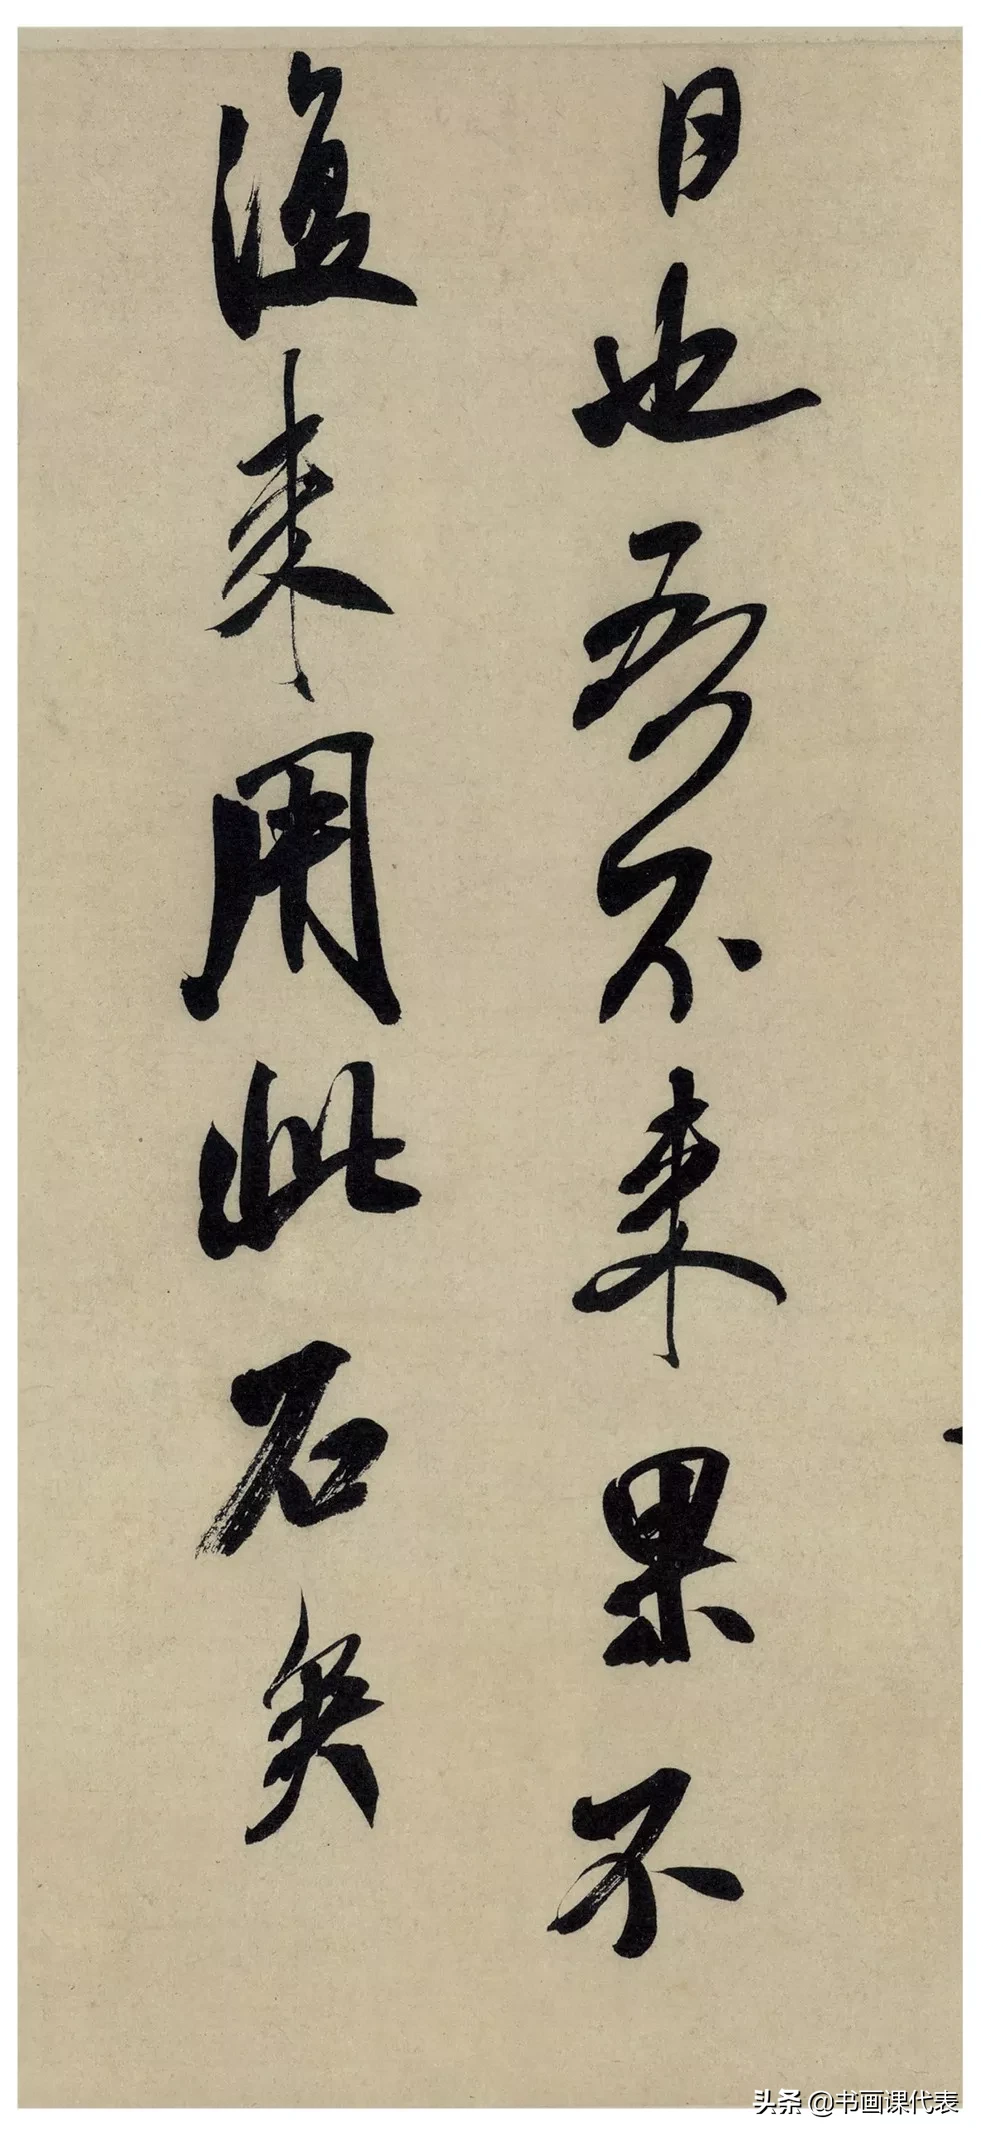 日也吾不来果不
復来用此石矣
头条 @书画课代表